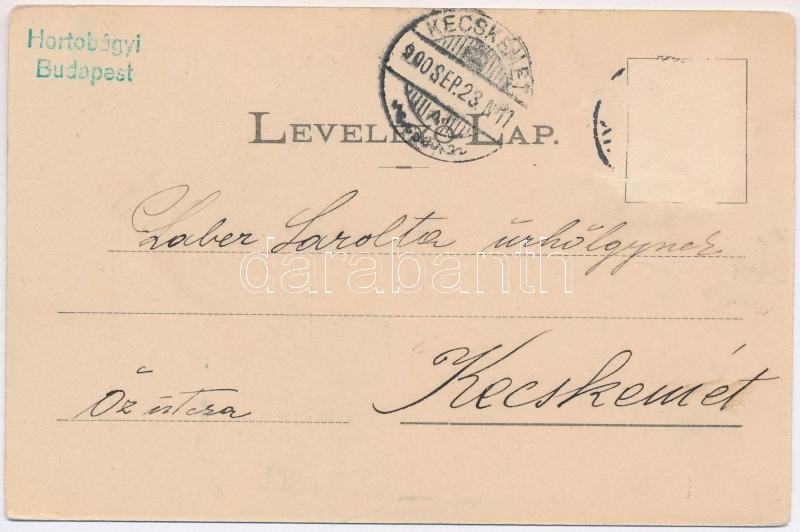 Hortobágyi
Budapest
KECSKEMÉT
900 SEP. 23. N11
LEVELEZŐ LAP.
Laber Sarolta úrhölgynek
darabanth
Kecskemét
Őz utcza